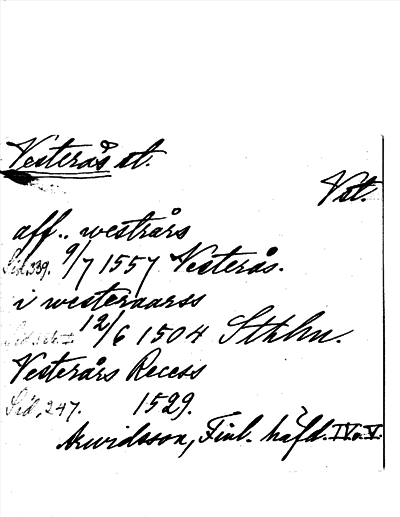 Vesterås st.
Vst.
aff.. westrårs
Sid. 339. 9/7 1557 Vesterås.
i westeraarss
12/6 1504 Sthlm.
Vesterårs Recess
Sid. 247. 1529.
Arwidsson, Finl. häfd. IV o. V.